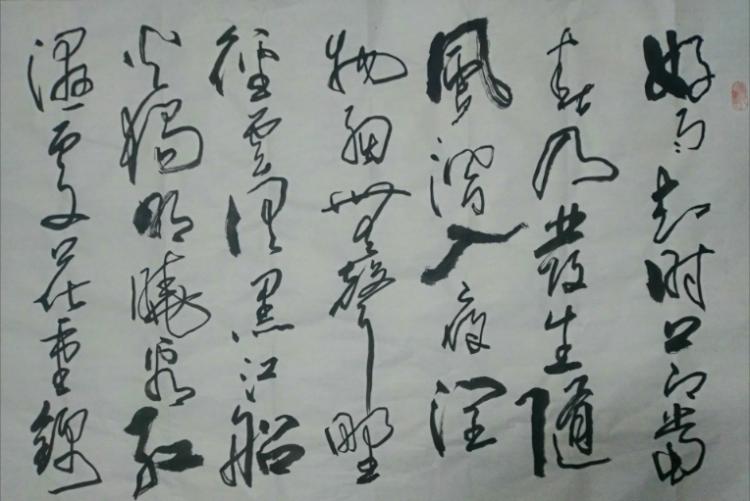 好雨知时节當
春乃發生隨
風潛入夜潤
物細無聲野
徑雲俱黑江船
火獨明曉看紅
濕處花重錦